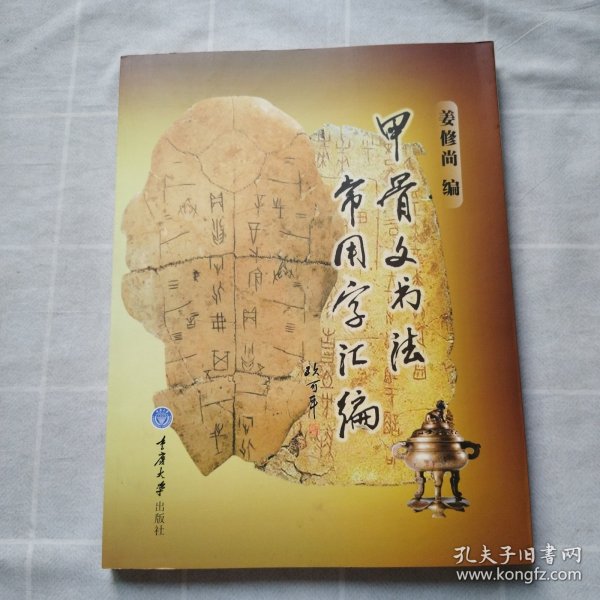 姜修尚 编
甲骨文书法
常用字汇编
重庆大学
出版社
孔夫子旧书网
www.kongfz.com